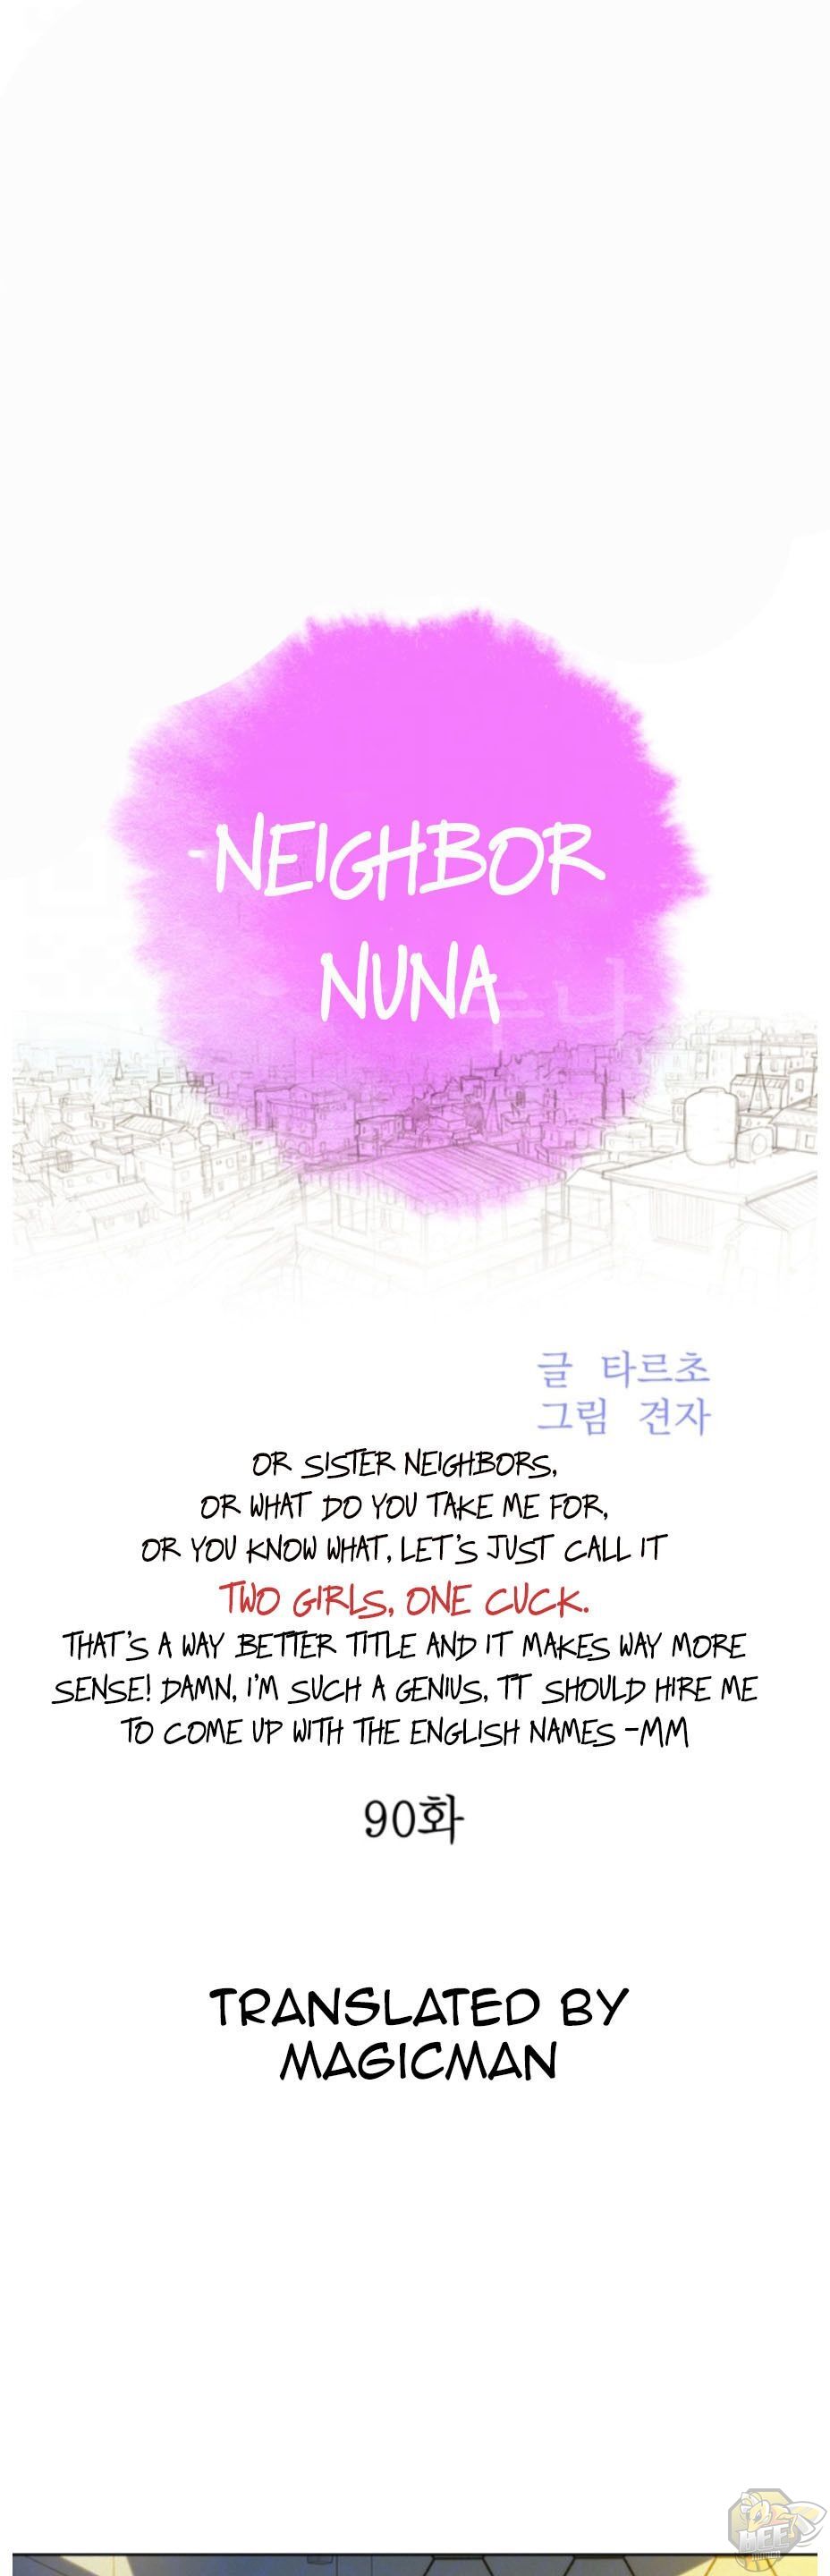 NEIGHBOR
NUNA
누나
글 타르초
그림 견자
OR SISTER NEIGHBORS,
OR WHAT DO YOU TAKE ME FOR,
OR YOU KNOW WHAT, LET'S JUST CALL IT
TWO GIRLS, ONE CUCK.
THAT'S A WAY BETTER TITLE AND IT MAKES WAY MORE
SENSE! DAMN, I'M SUCH A GENIUS, TT SHOULD HIRE ME
TO COME UP WITH THE ENGLISH NAMES -MM
90화
TRANSLATED BY
MAGICMAN
BEE